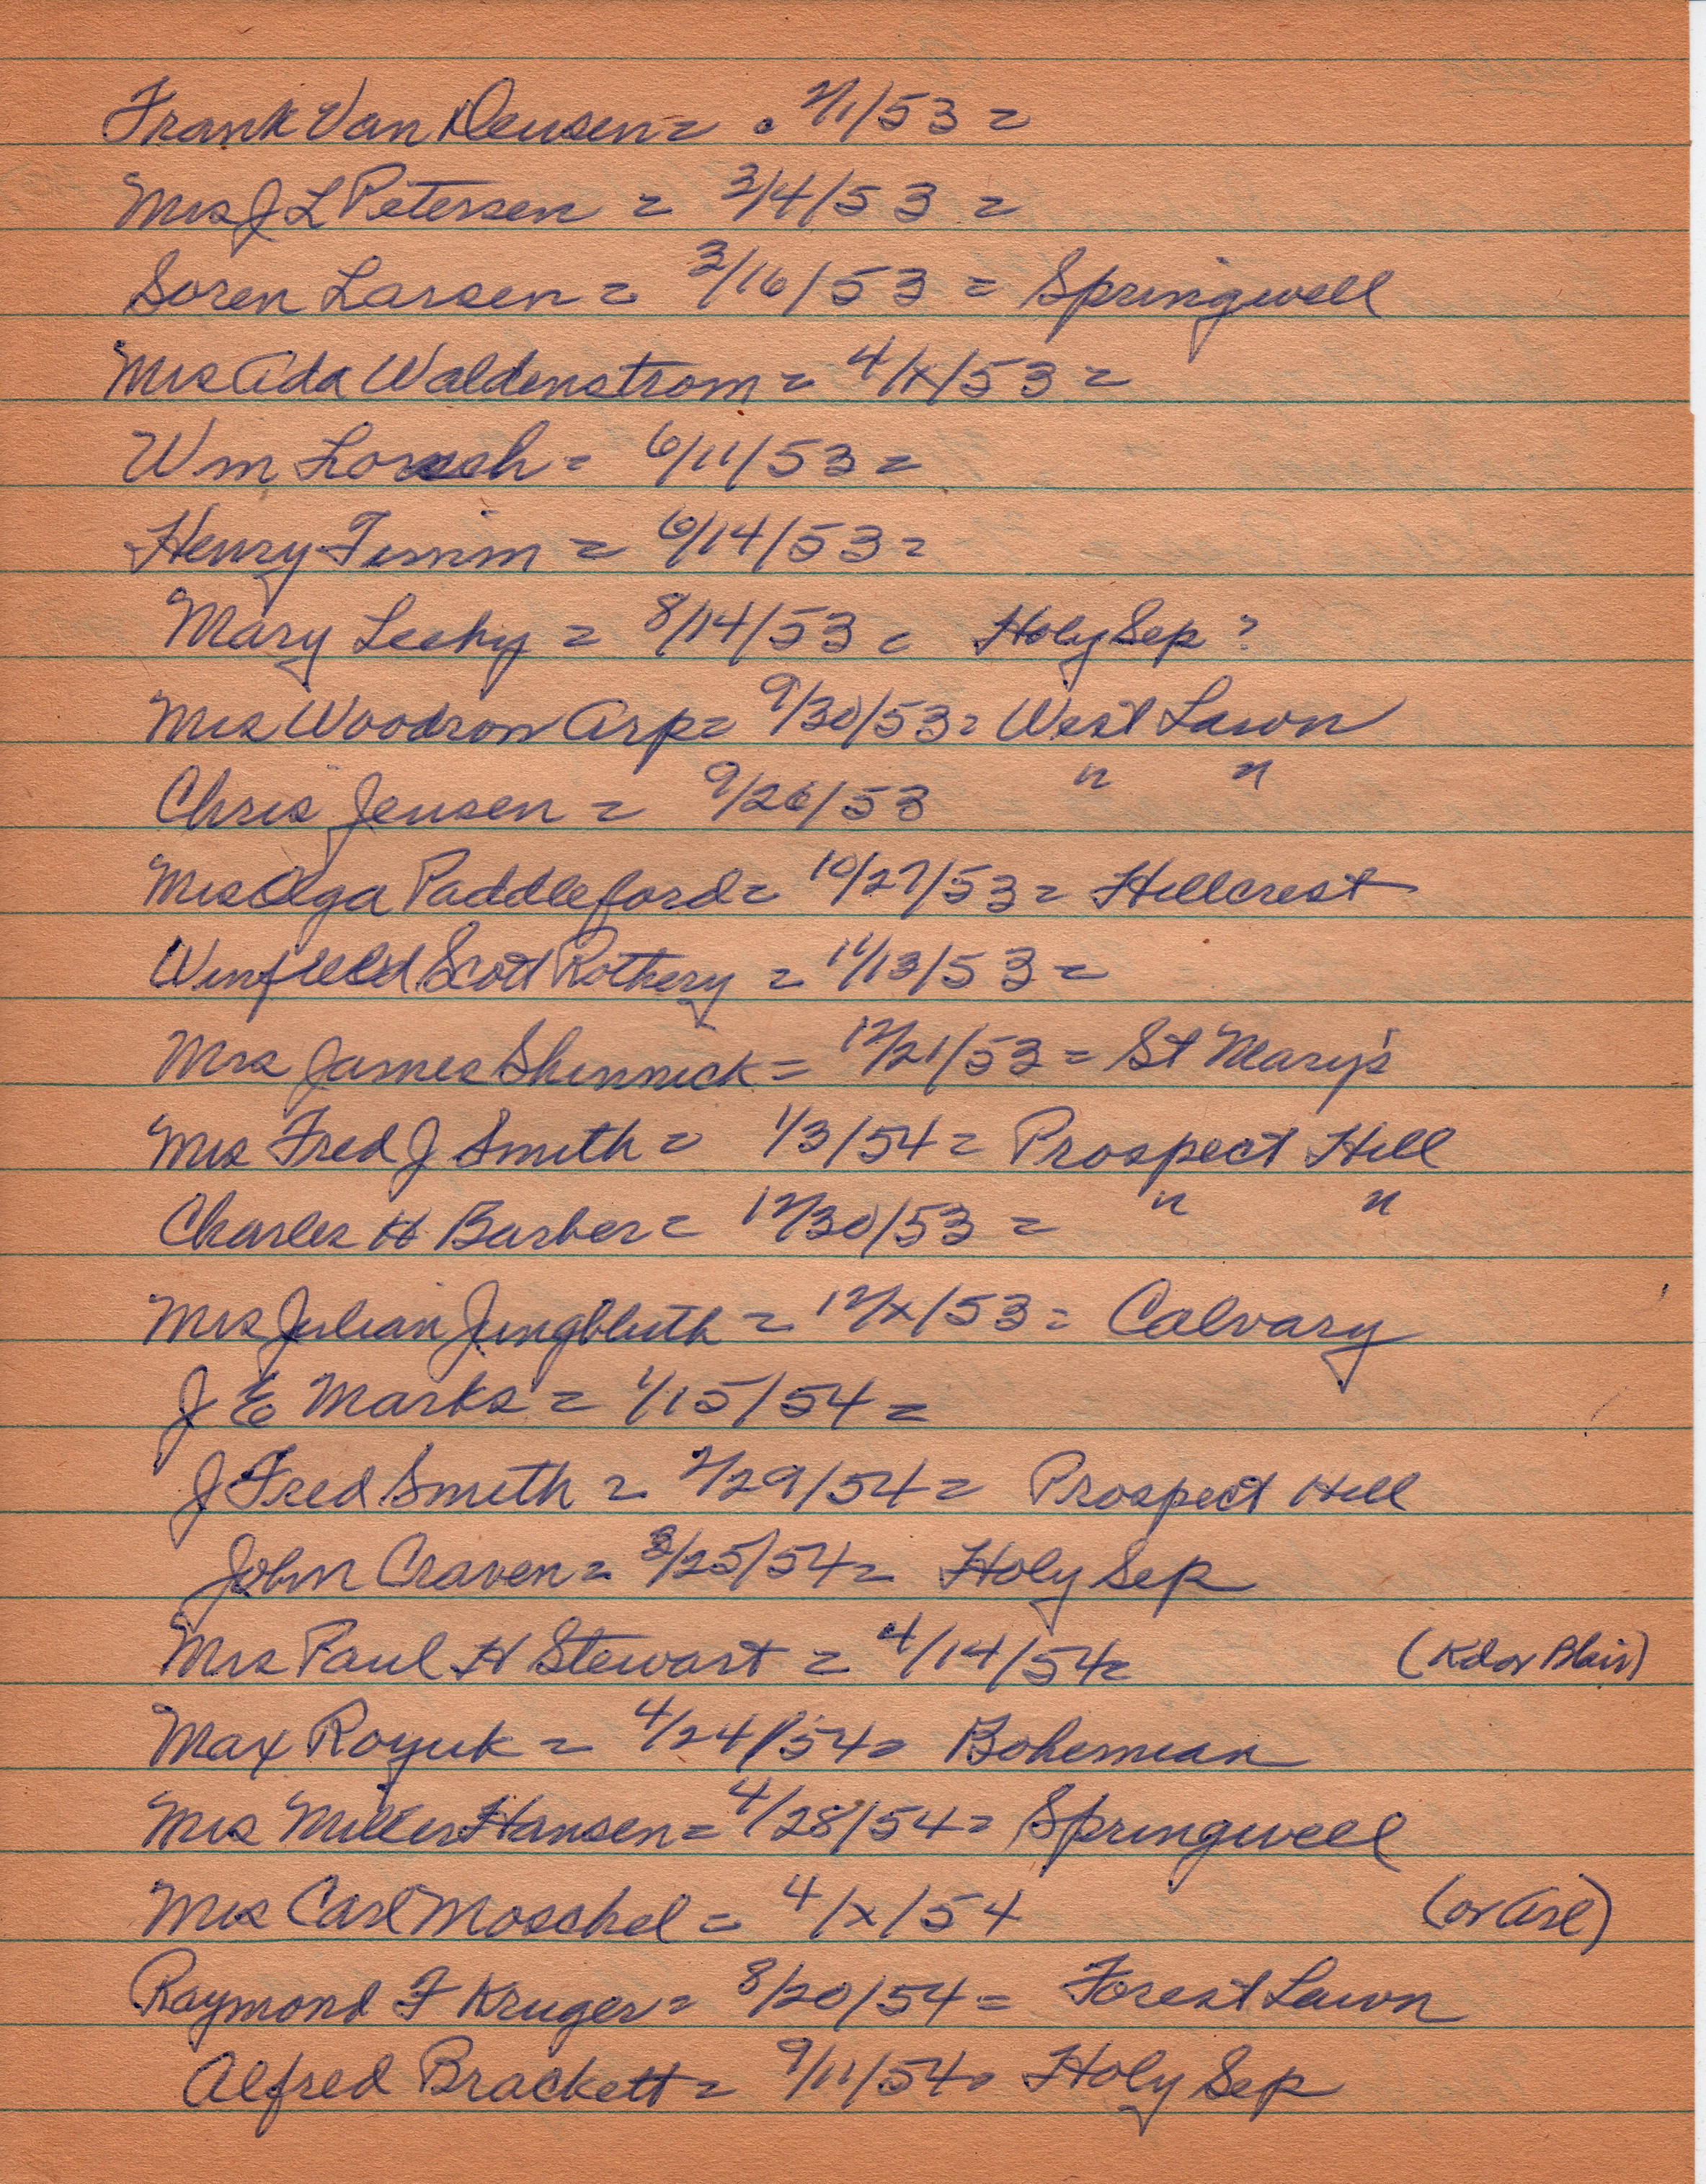 Frank Van Deusen = . 2/1/53 =
Mrs J L Petersen = 3/4/53 =
Soren Larsen = 3/16/53 = Springwell
Mrs Ada Waldenstrom = 4/x/53 =
Wm = 6/11/53 =
Henry Timm = 6/14/53 =
Mary Leehy = 8/14/53 = Holy Sep ?
Mrs Woodrow Arp = 9/30/53 = West Lawn
Chris Jensen = 9/26/53 " "
Mrs Olga Paddleford = 10/27/53 = Hillcrest
Winfield Scott Rothery = 11/13/53 =
Mrs James Shinnick = 12/21/53 = St Mary's
Mrs Fred J Smith = 1/3/54 = Prospect Hill
Charles H Barber = 12/30/53 = " "
Mrs Julian Jungbluth = 12/x/53 = Calvary
J E Marks = 1/15/54 =
J Fred Smith = 2/29/54 = Prospect Hill
John Craven = 3/25/54 = Holy Sep
Mrs Paul H Stewart = 4/14/54 = (Kd or Blair)
Max Royuk = 4/24/54 = Bohemian
Mrs Miller Hansen = 4/28/54 = Springwell
Mrs Carl Moschel = 4/x/54 (or Arl)
Raymond F Kruger = 8/20/54 = Forest Lawn
Alfred Brackett = 9/11/54 = Holy Sep